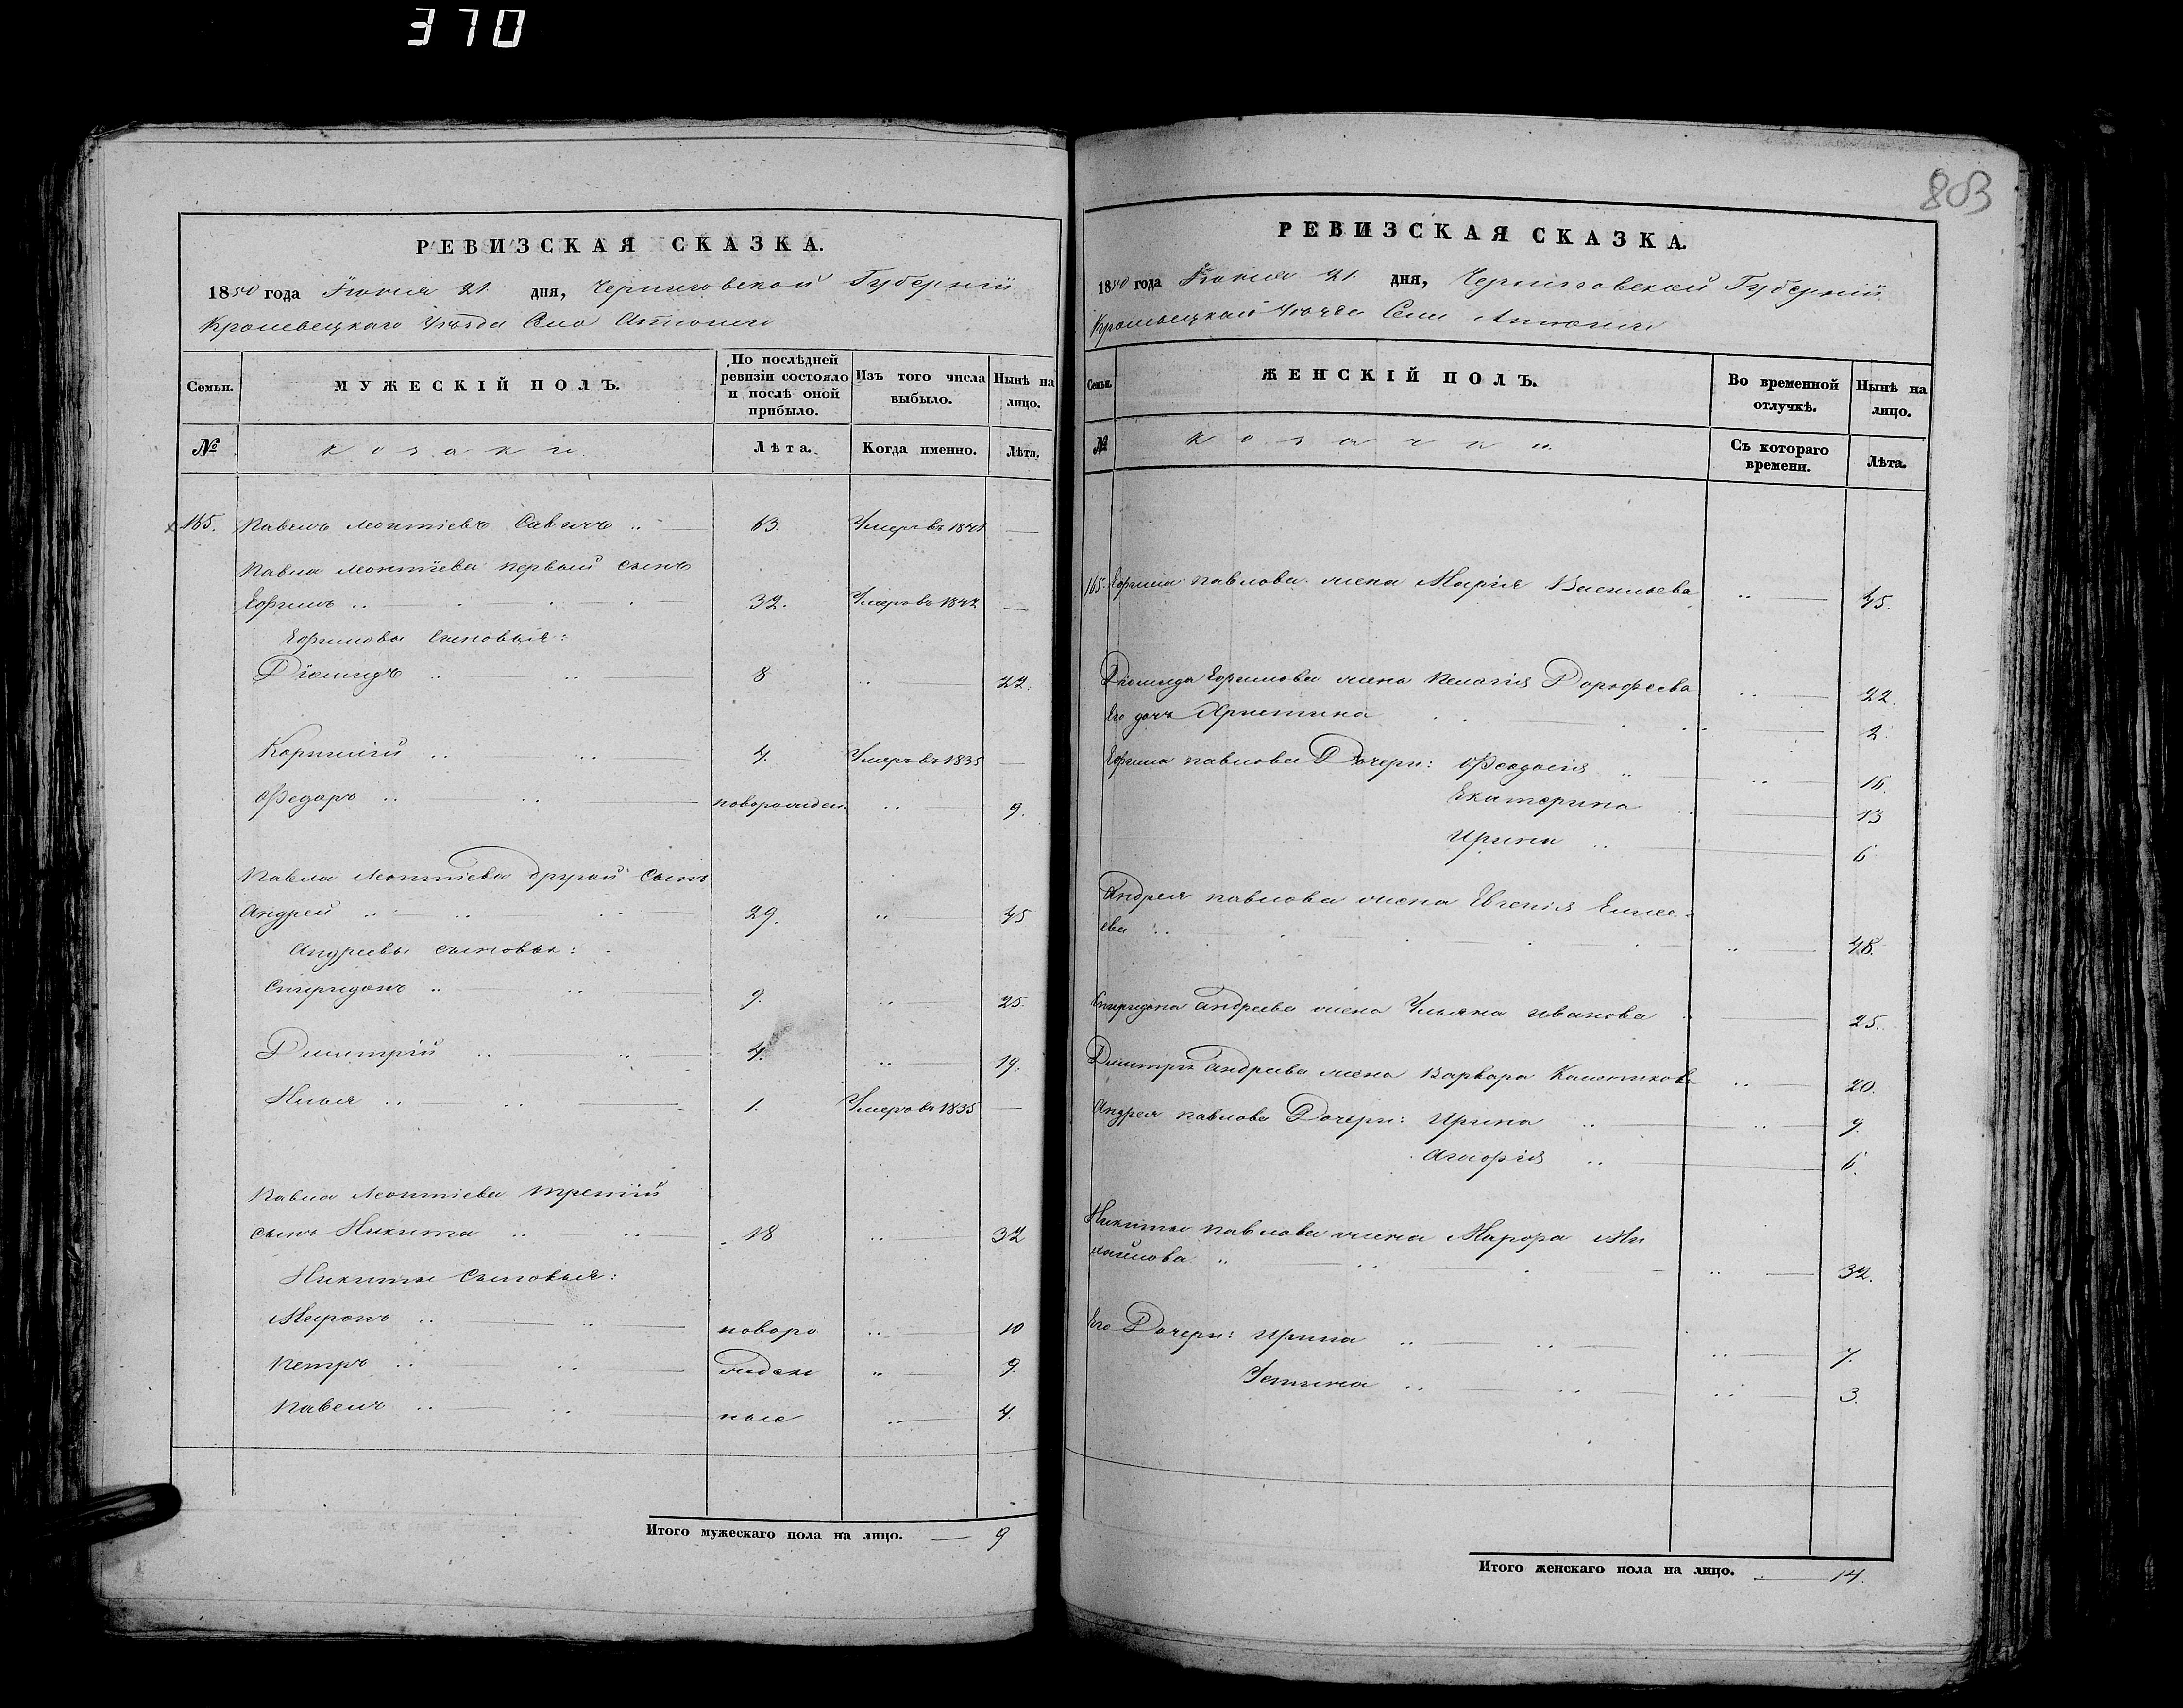 370
803
РЕВИЗСКАЯ СКАЗКА.
1850 года Іюня 21 дня, Черниговской Губерніи
Кролевецкаго Уѣзда Село
Семьи.
МУЖЕСКІЙ ПОЛЪ.
По послѣдней ревизіи состояло и послѣ оной прибыло.
Изъ того числа выбыло.
Нынѣ на лицо.
№
козаки
Лѣта.
Когда именно.
Лѣта.
165. Павелъ Леонтіевъ Савичъ 63. Умеръ въ 1841
Павла Леонтіева первый сынъ
Ефимъ 32. Умеръ въ 1847
Ефимовы сыновья:
Діомидъ 8 22.
Корнилій 4. Умеръ въ 1835
Ѳедоръ новорожден. 9.
Павла Леонтіева другой сынъ
Андрей 29. 45
Андреевы сыновья:
Спиридонъ 9. 25.
Димитрій 4. 19.
Илья 1. Умеръ въ 1835
Павла Леонтіева третій
сынъ Никита 18 32
Никиты сыновья:
Миронъ новоро 10
Петръ жден 9.
Павелъ ные 4.
Итого мужескаго пола на лицо. 9
РЕВИЗСКАЯ СКАЗКА.
1850 года Іюня 21. дня, Черниговской Губерніи
Кролевецкаго Уѣзда Села
Семьи.
ЖЕНСКІЙ ПОЛЪ.
Во временной отлучкѣ.
Нынѣ на лицо.
№
козачки.
Съ котораго времени.
Лѣта.
165. Ефима Павлова жена Марія Васильева 45.
Діомида Ефимова жена Пелагія Дорофеева 22.
Его дочь Христина 2.
Ефима Павлова Дочери: Ѳеодосія 16.
Екатерина 13
Ирина 6
Андрея Павлова жена Евгенія Елисе
ева 48.
Спиридона Андреева жена Ульяна Иванова 25.
Димитрія Андреева жена Варвара 20.
Андрея Павлова Дочери: Ирина 9.
Агафія 6.
Никиты Павлова жена Марфа Ми
хайлова 32.
Его Дочери: Ирина 7.
Устина 3.
Итого женскаго пола на лицо. 14.